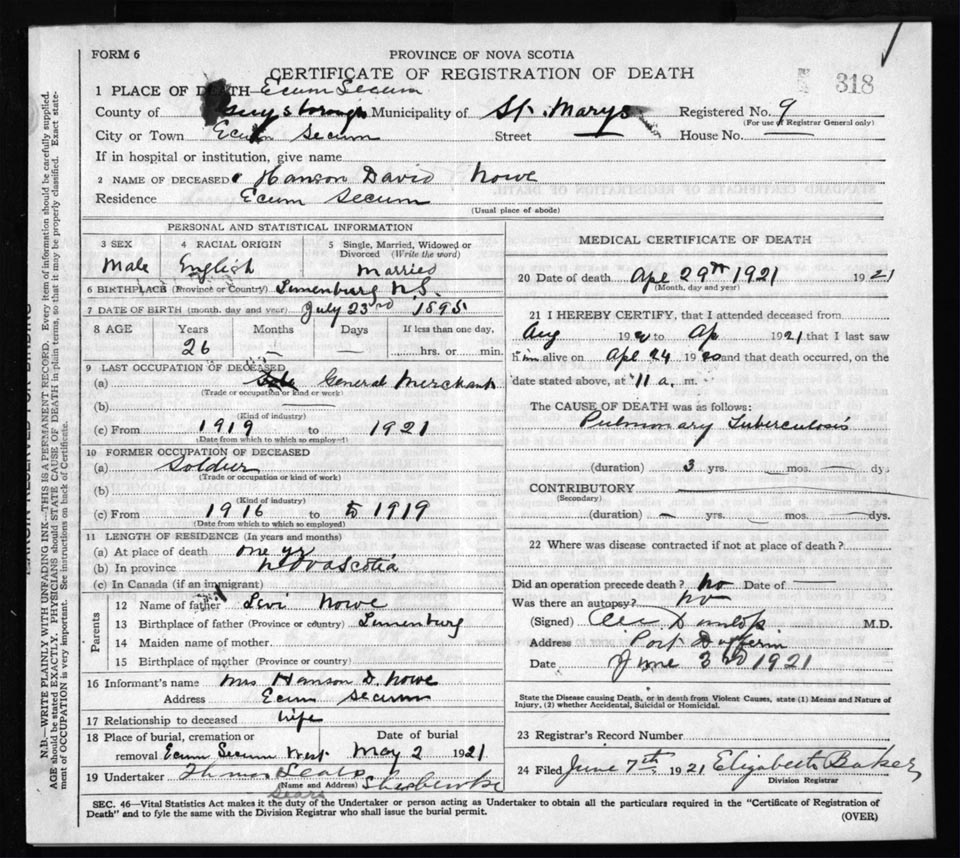 FORM 6
PROVINCE OF NOVA SCOTIA
CERTIFICATE OF REGISTRATION OF DEATH
318
1 PLACE OF DEATH Ecum Secum
County of Guysborough Municipality of St. Marys Registered No. 9
(For use of Registrar General only)
City or Town Ecum Secum Street House No.
If in hospital or institution, give name
2 NAME OF DECEASED Hanson David Nowe
Residence Ecum Secum
(Usual place of abode)
PERSONAL AND STATISTICAL INFORMATION
3 SEX 4 RACIAL ORIGIN 5 Single, Married, Widowed or Divorced (Write the word)
Male English Married
6 BIRTHPLACE (Province or Country) Lunenburg N.S.
7 DATE OF BIRTH (month, day and year) July 23rd 1895
8 AGE Years Months Days If less than one day,
26 — — hrs. or min.
9 LAST OCCUPATION OF DECEASED
(a) General Merchant
(Trade or occupation or kind of work)
(b)
(Kind of industry)
(c) From 1919 to 1921
(Date from which to which so employed)
10 FORMER OCCUPATION OF DECEASED
(a) Soldier
(Trade or occupation or kind of work)
(b)
(Kind of industry)
(c) From 1916 to to 1919
(Date from which to which so employed)
11 LENGTH OF RESIDENCE (In years and months)
(a) At place of death one yr
(b) In province Nova Scotia
(c) In Canada (if an immigrant)
Parents
12 Name of father Levi Nowe
13 Birthplace of father (Province or country) Lunenburg
14 Maiden name of mother
15 Birthplace of mother (Province or country)
16 Informant's name Mrs Hanson D. Nowe
Address Ecum Secum
17 Relationship to deceased wife
18 Place of burial, cremation or removal Ecum Secum West Date of burial May 2 1921
19 Undertaker Thomas Sears Sherbrooke
(Name and Address)
Sears
MEDICAL CERTIFICATE OF DEATH
20 Date of death Apl 29th 1921 1921
(Month, day and year)
21 I HEREBY CERTIFY, that I attended deceased from
Aug 19 to Ap 1921 that I last saw
him alive on Apl 24 1920 and that death occurred, on the
date stated above, at 11 a. m.
The CAUSE OF DEATH was as follows:
Pulmonary Tuberculosis
(duration) 3 yrs. — mos. — dys.
CONTRIBUTORY
(Secondary)
(duration) — yrs. — mos. — dys.
22 Where was disease contracted if not at place of death?
Did an operation precede death? No Date of —
Was there an autopsy? No
(Signed) Dunlop M.D.
Address Port Dufferin
Date June 3rd 1921
State the Disease causing Death, or in death from Violent Causes, state (1) Means and Nature of
Injury, (2) whether Accidental, Suicidal or Homicidal.
23 Registrar's Record Number
24 Filed June 7th 1921 Elizabeth Baker
Division Registrar
SEC. 46—Vital Statistics Act makes it the duty of the Undertaker or person acting as Undertaker to obtain all the particulars required in the "Certificate of Registration of
Death" and to fyle the same with the Division Registrar who shall issue the burial permit.
(OVER)
N.B.—WRITE PLAINLY WITH UNFADING INK—THIS IS A PERMANENT RECORD. Every item of information should be carefully supplied.
AGE should be stated EXACTLY. PHYSICIANS should STATE CAUSE OF DEATH in plain terms, so that it may be properly classified. Exact state-
ment of OCCUPATION is very important. See instructions on back of Certificate.